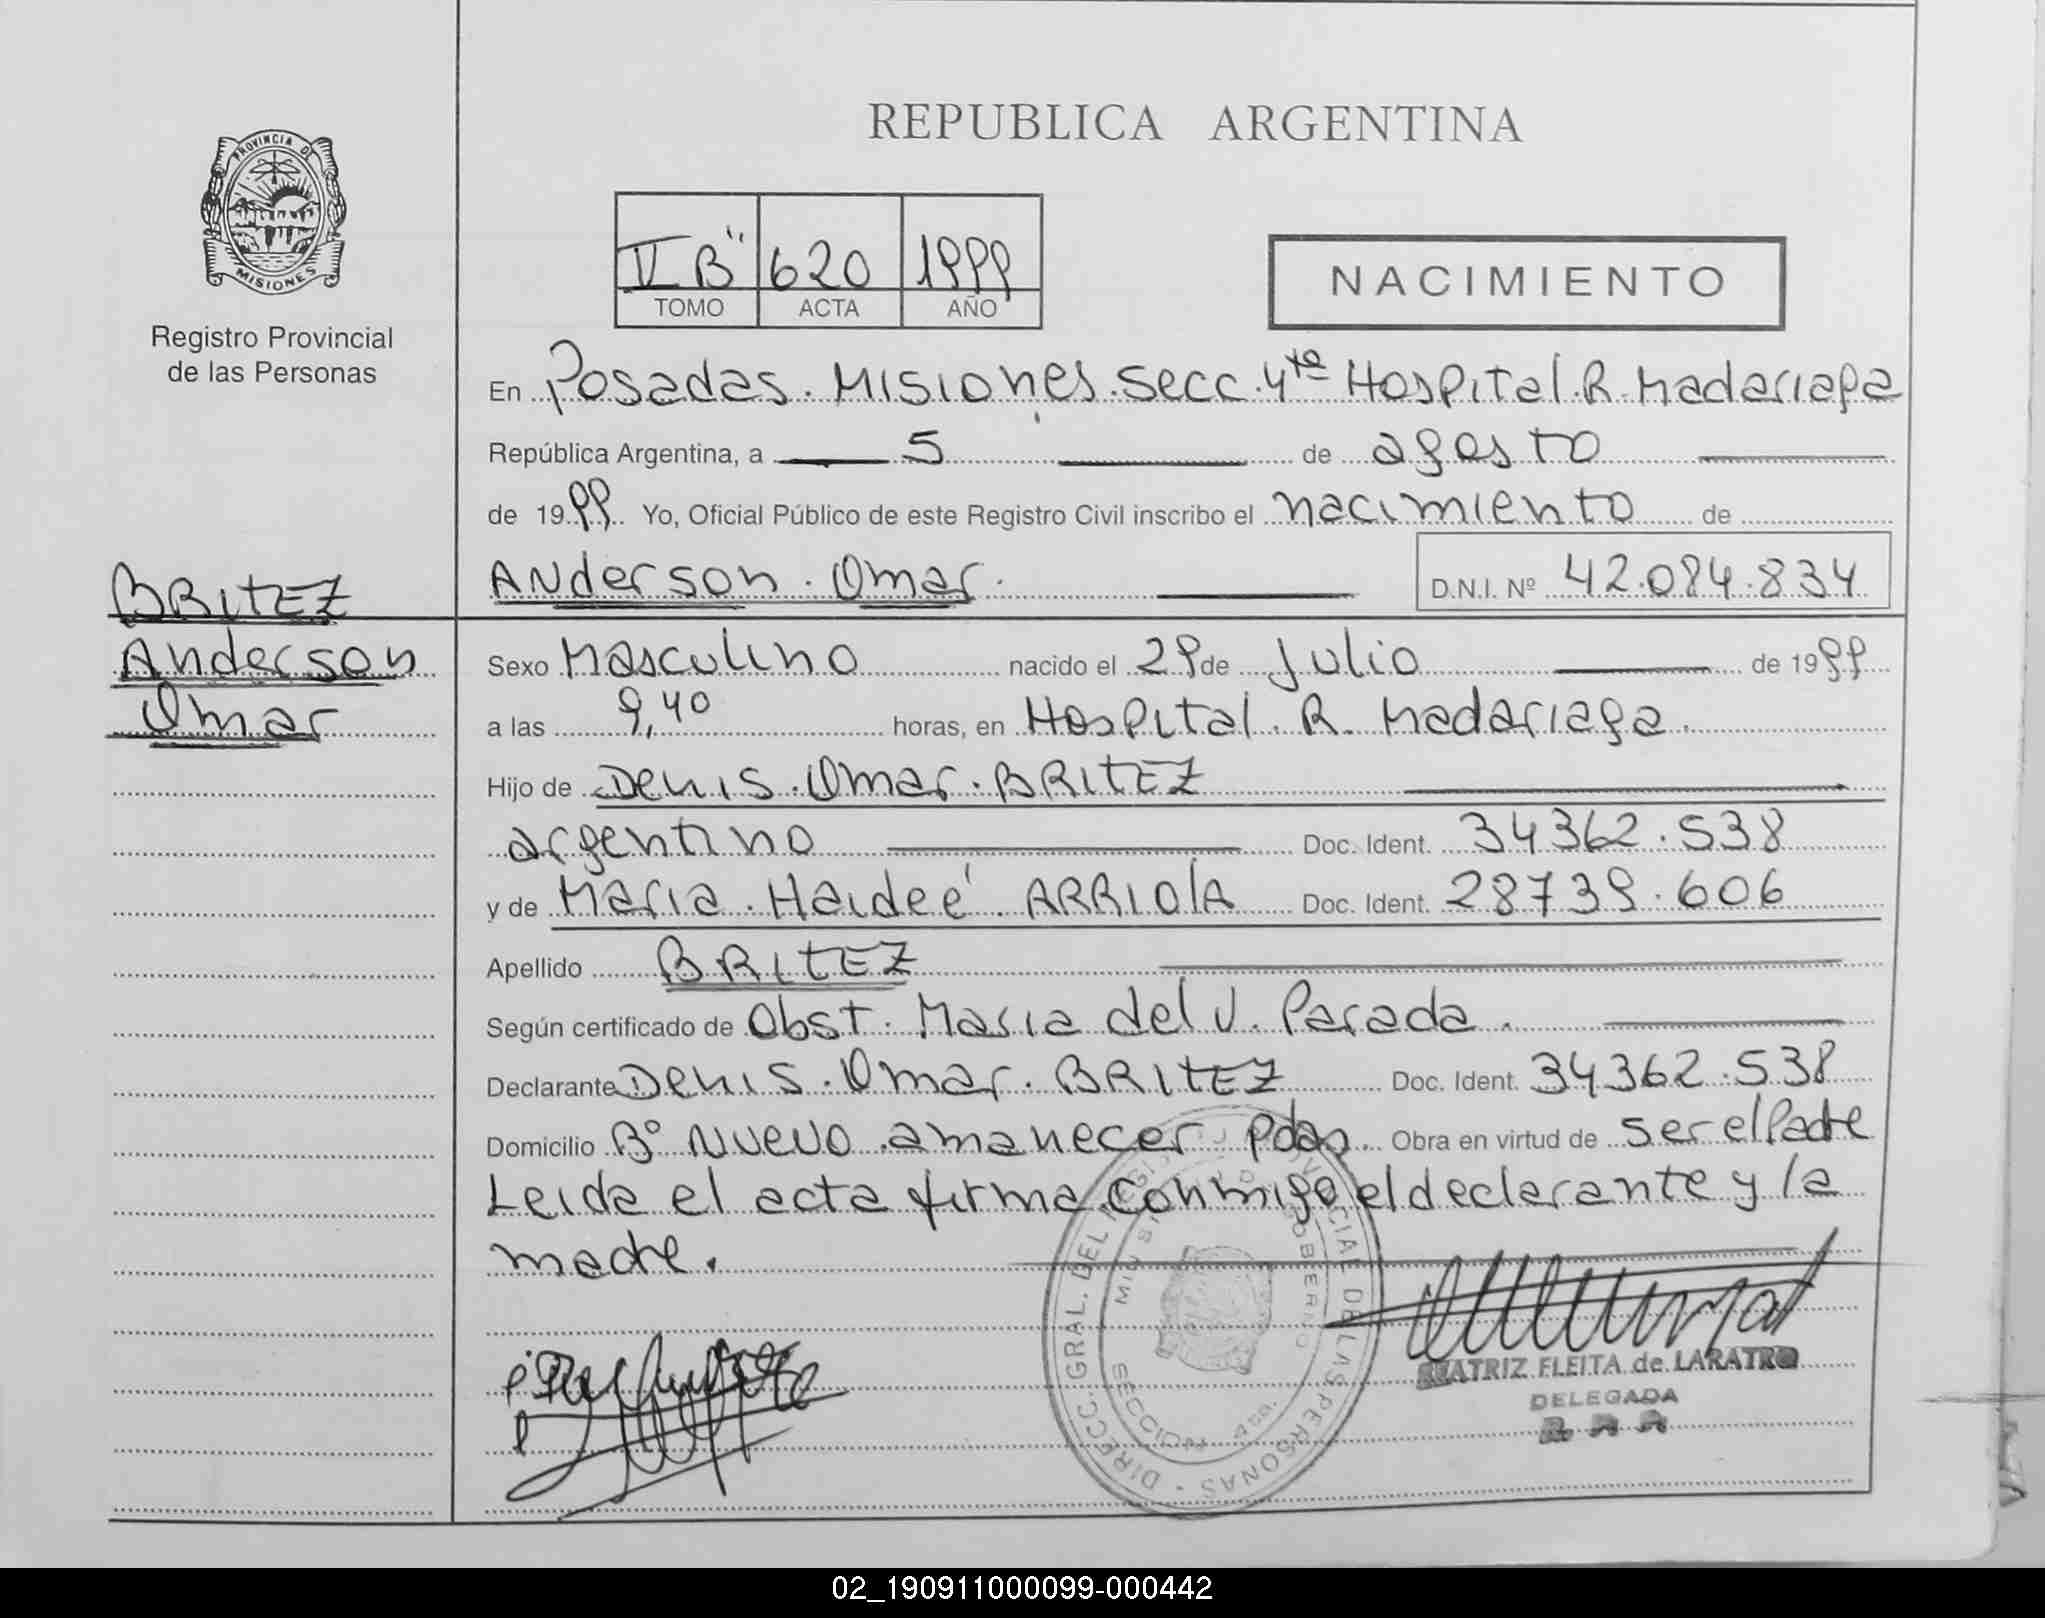 REPUBLICA ARGENTINA
PROVINCIA DE MISIONES
Registro Provincial
de las Personas
V "B" 620 1999
TOMO ACTA AÑO
NACIMIENTO
En Posadas. Misiones. Secc. 4ta Hospital. R. Madariaga
República Argentina, a 5 de agosto
de 1999 Yo, Oficial Público de este Registro Civil inscribo el nacimiento de
Anderson. Omar. D.N.I. Nº 42.084.834
BRITEZ
Anderson
Omar
Sexo Masculino nacido el 29 de Julio de 1999
a las 9,40 horas, en Hospital. R. Madariaga.
Hijo de Denis. Omar. BRITEZ
argentino Doc. Ident. 34362.538
y de Maria. Haideé. ARRIOlA Doc. Ident. 28739.606
Apellido BRITEZ
Según certificado de Obst. Maria del V. Parada.
Declarante Denis. Omar. BRITEZ Doc. Ident. 34362.538
Domicilio Bº Nuevo amanecer Pdas Obra en virtud de ser el Padre
Leida el acta firma conmigo el declarante y la
madre.
DIRECC. GRAL. DEL REGISTRO PROVINCIAL DE LAS PERSONAS
MINISTERIO DE GOBIERNO
SECCION 4ta.
BEATRIZ FLEITA de LARATRO
DELEGADA
02_190911000099-000442